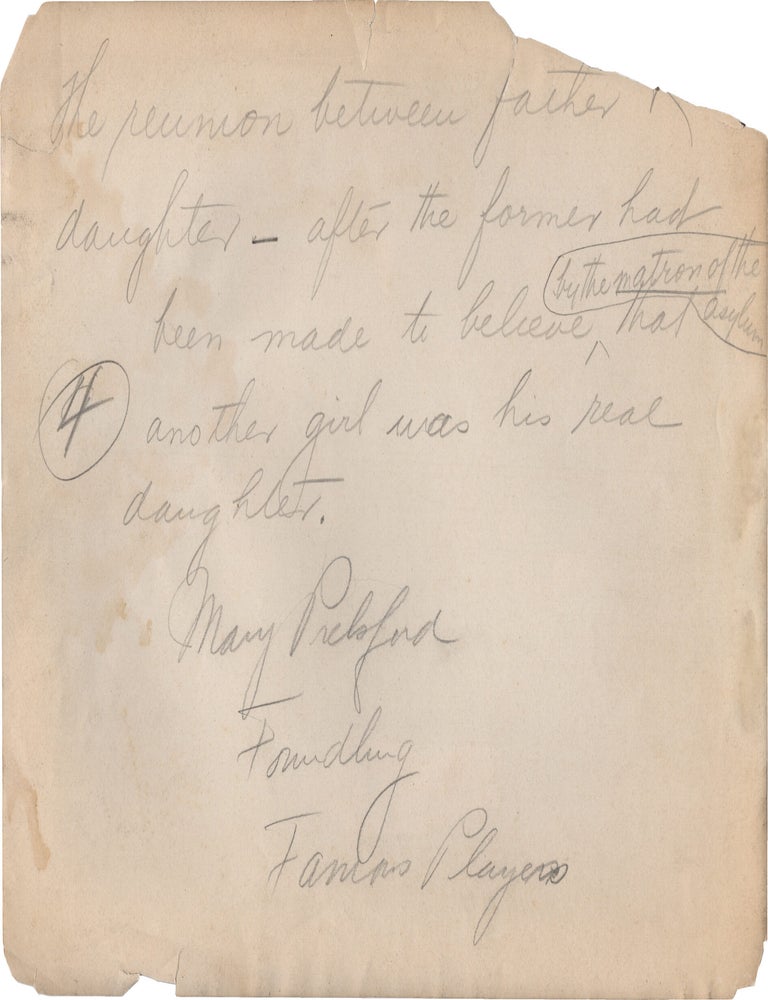 The reunion between father
daughter – after the former had
by the matron of the
asylum
been made to believe ^ that
4 another girl was his real
daughter.
Mary Pickford
Foundling
Famous Players